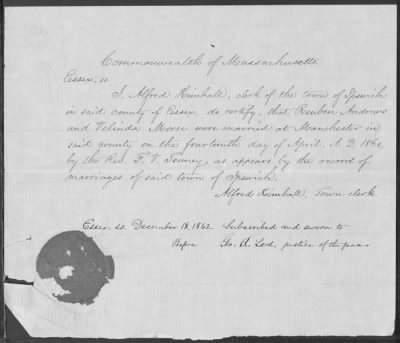 Commonwealth of Massachusetts.
Essex, ss.
I, Alfred Kimball, clerk of the town of Ipswich
in said county of Essex, do certify, that Reuben Andrews
and Velinda Moore were married at Manchester in
said county on the fourteenth day of April, A. D. 1860,
by the Rev. F. V. Tenney, as appears by the record of
marriages of said town of Ipswich.
Alfred Kimball, Town clerk
Essex, ss. December 18, 1862 Subscribed and sworn to
Before Geo. R. Lord, justice of the peace